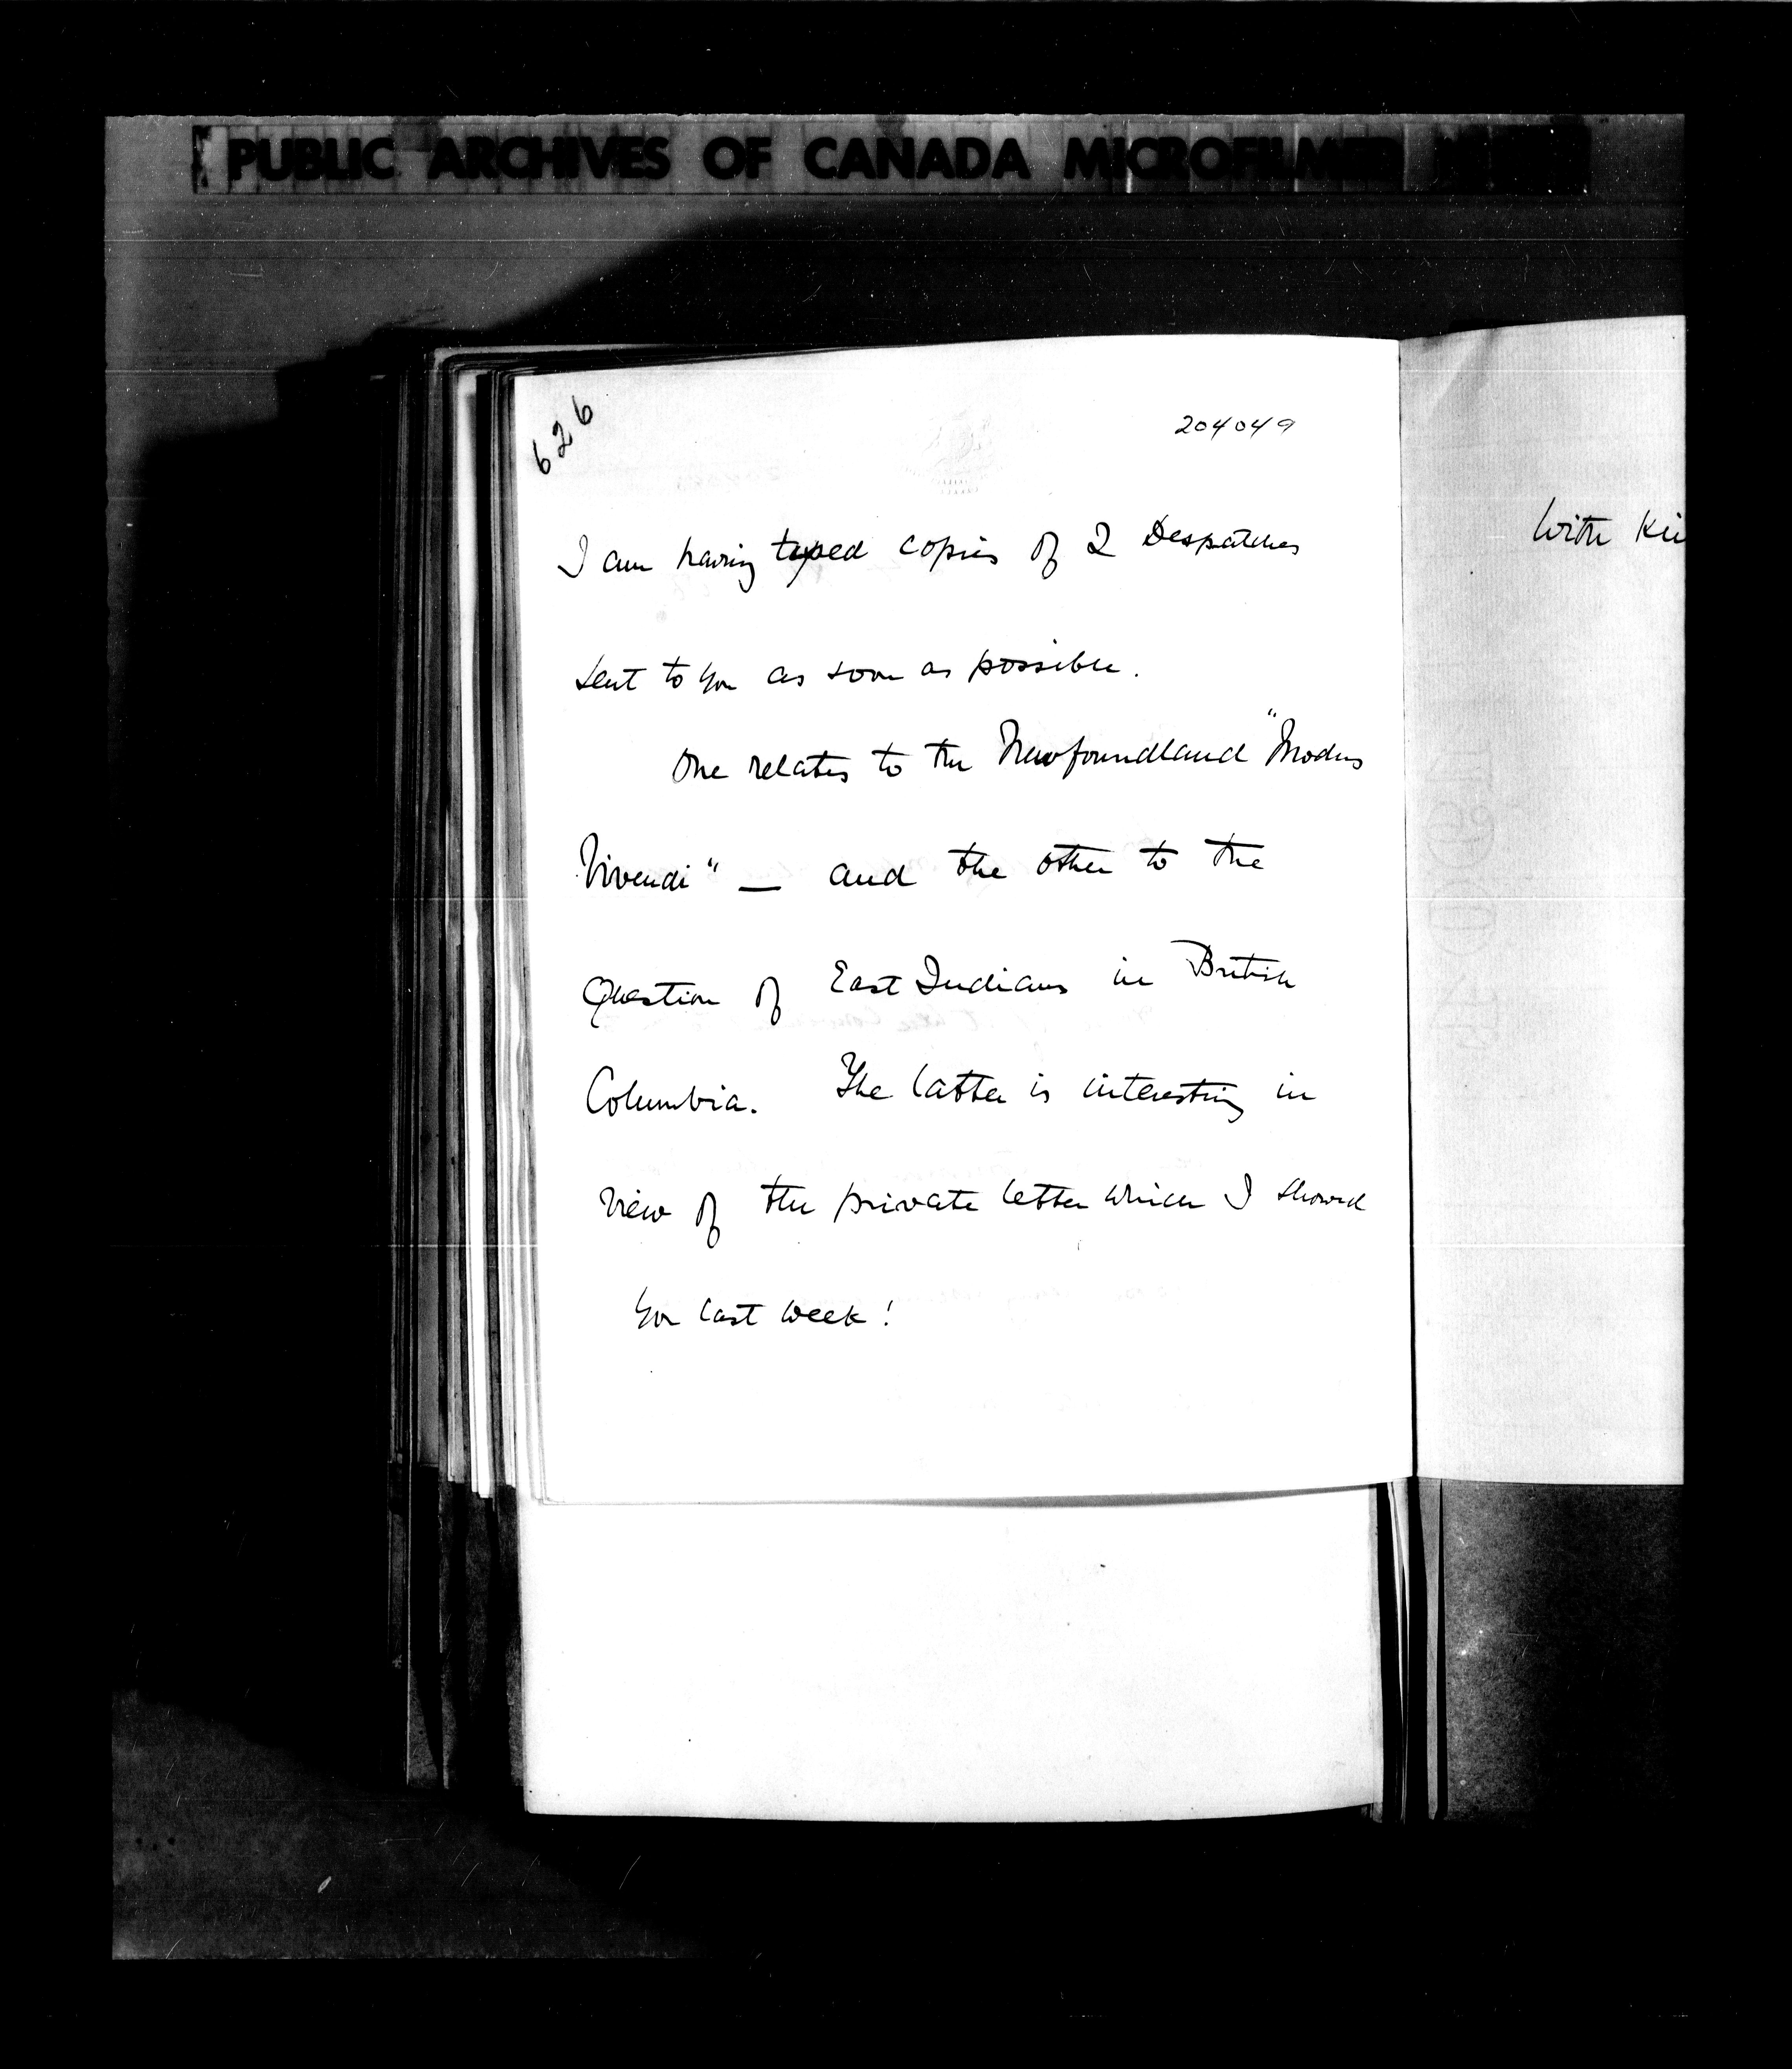 PUBLIC ARCHIVES OF CANADA MICROFILMED
626
204049
I am having typed copies of 2 Despatches
sent to you as soon as possible.
One relates to the Newfoundland "Modus
Vivendi" — and the other to the
Question of East Indians in British
Columbia. The latter is interesting in
view of the private letter which I showed
you last week!
With Ki